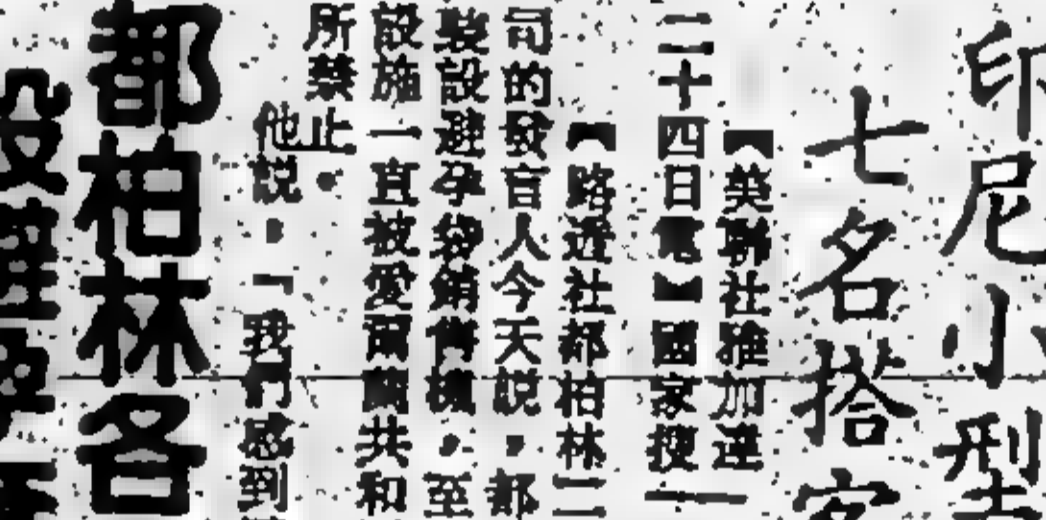 印尼小型
七名搭客
【美聯社雅加達
二十四日電】國家搜
【路透社都柏林二
司的發言人今天說，都
裝設避孕袋銷售機，至
設施一直被愛爾蘭共和
所禁止。
他說，「我們感到
都柏林各